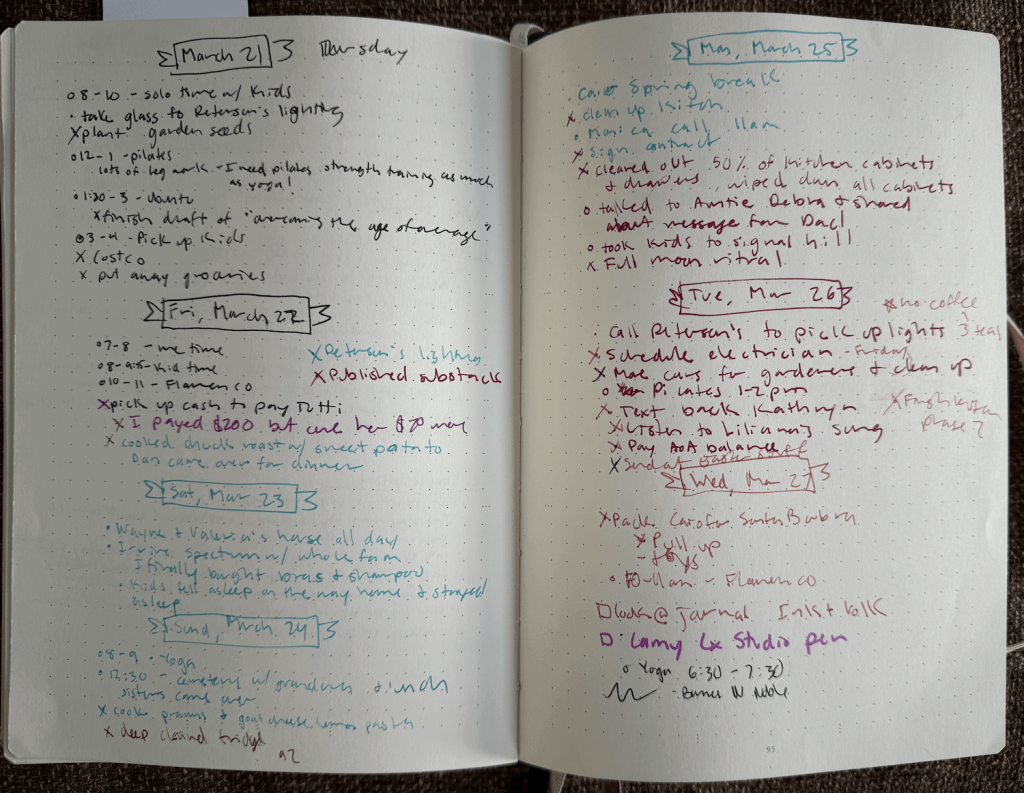 March 21 Thursday
o 8-10 - solo time w/ kids
· take glass to Peterson's lighting
x plant garden seeds
o 12-1 - pilates
lots of leg work - I need pilates strength training as much
as yoga!
o 1:30-3 -
x finish draft of "overcoming the age of average"
o 3-4 - Pick up kids
x Costco
x put away groceries
Fri, March 22
o 7-8 - me time
x Peterson's lighting
o 8-9:5 - Kid time
x Published substack
o 10-11 - Flamenco
x pick up cash to pay Tutti
x I payed $200 but owe her $70 more
x cooked chuck roast w/ sweet potato
Dan came over for dinner
Sat, Mar 23
· Wayne & Valeria's house all day
· Irvine spectrum w/ whole fam
I finally bought bras & shampoo
· Kids fell asleep on the way home & stayed
asleep
Sund, March 24
o 8-9 - Yoga
o 12:30 - cemetery w/ grandma & lunch
sisters came over
x cook prawns & goat cheese lemon pasta
x deep cleaned fridge
92
Mon, March 25
· Caro Spring break
x clean up kitch
o Monica call 11am
x sign contract
x cleared out 50% of kitchen cabinets
& drawers, wiped down all cabinets
o talked to Auntie Debra & shared
about message from Dad
o took kids to signal hill
x Full moon ritual
Tue, Mar 26
x no coffee
3 teas
· Call Peterson's to pick up lights
x Schedule electrician - Friday
x Move cars for gardeners & clean up
o Pilates 1-2pm
x Text back Kathryn
x Listen to Lilianna's song
x Pay AoA balance
x Send
Phase 2
Wed, Mar 27
x Pack Caro for Santa Barbara
x Pull up
- toys
o 10-11am - Flamenco
□ look @ journal Ink + Volk
□ · Lamy Lx Studio pen
o Yoga 6:30 - 7:30
- Barnes N Noble
93